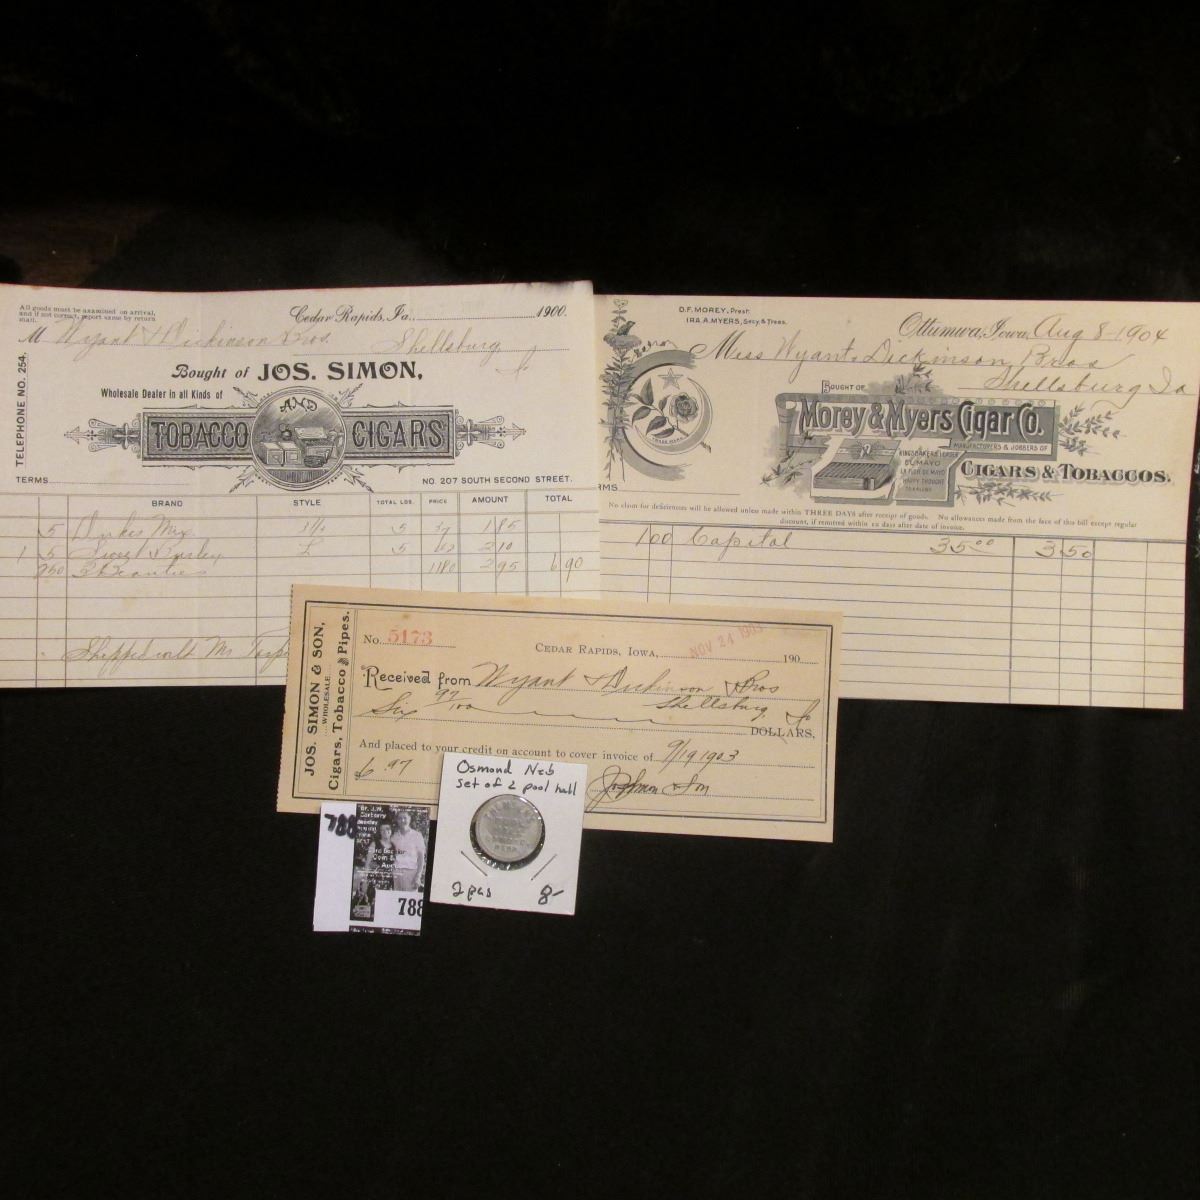 All goods must be examined on arrival,
and if not correct, report same by return
mail.
Cedar Rapids, Ia. 1900.
M Wyant & Dickinson Bros.
Shellsburg
Bought of JOS. SIMON,
Wholesale Dealer in all Kinds of
TOBACCO AND CIGARS
TELEPHONE NO. 254.
TERMS
NO. 207 SOUTH SECOND STREET.
BRAND STYLE TOTAL LBS. PRICE AMOUNT TOTAL
5 Dukes Mix 5 37 185
1 5 Sweet Burley 5 210
250 1180 295 690
Shipped with
O.F. MOREY, Prest.
IRA A. MYERS, Secy. & Treas.
Ottumwa, Iowa, Aug 8 1904
Mess Wyant. Dickinson Bros
Shellsburg Ia
BOUGHT OF
Morey & Myers Cigar Co.
MANUFACTURERS & JOBBERS OF
CIGARS & TOBACCOS.
TRADE MARK
KINGSBAKERS LEADER
SUMAYO
LA FLOR DE MAYO
HAPPY THOUGHT
No claim for deficiencies will be allowed unless made within THREE DAYS after receipt of goods. No allowances made from the face of this bill except regular
discount, if remitted within 10 days after date of invoice.
100 Capital 35 00 3 50
JOS. SIMON & SON,
WHOLESALE
Cigars, Tobacco and Pipes.
No. 5173
CEDAR RAPIDS, IOWA, NOV 24 1903 190
Received from Wyant & Dickinson Bros
Shellsburg, Io
Six 97/100 DOLLARS,
And placed to your credit on account to cover invoice of 9/19 1903
$6.97
Jos Simon & Son
Osmond Neb
set of 2 pool hall
2 pcs 8-
788
Coin &
788